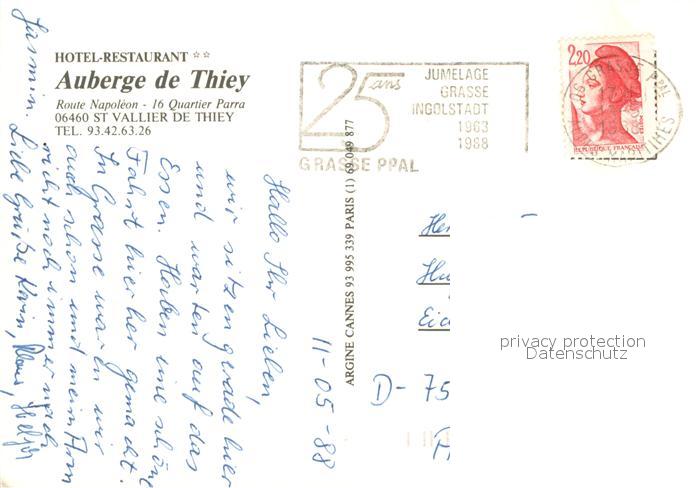 HOTEL-RESTAURANT **
Auberge de Thiey
Route Napoléon - 16 Quartier Parra
06460 ST VALLIER DE THIEY
TEL. 93.42.63.26
25 ans
JUMELAGE
GRASSE
INGOLSTADT
1963
1988
GRASSE PPAL
2,20
REPUBLIQUE FRANÇAISE
ARGINE CANNES 93 995 339 PARIS (1) 69 049 877
11-05-88
Hallo Ihr Lieben,
wir sitzen gerade hier
und warten auf das
Essen. Haben eine schöne
Fahrt hierher gemacht.
In Grasse waren wir
auch schon und meim Arm
riecht noch immer nach
Jasmin. Liebe Grüße Karin,
D-75
privacy protection
Datenschutz